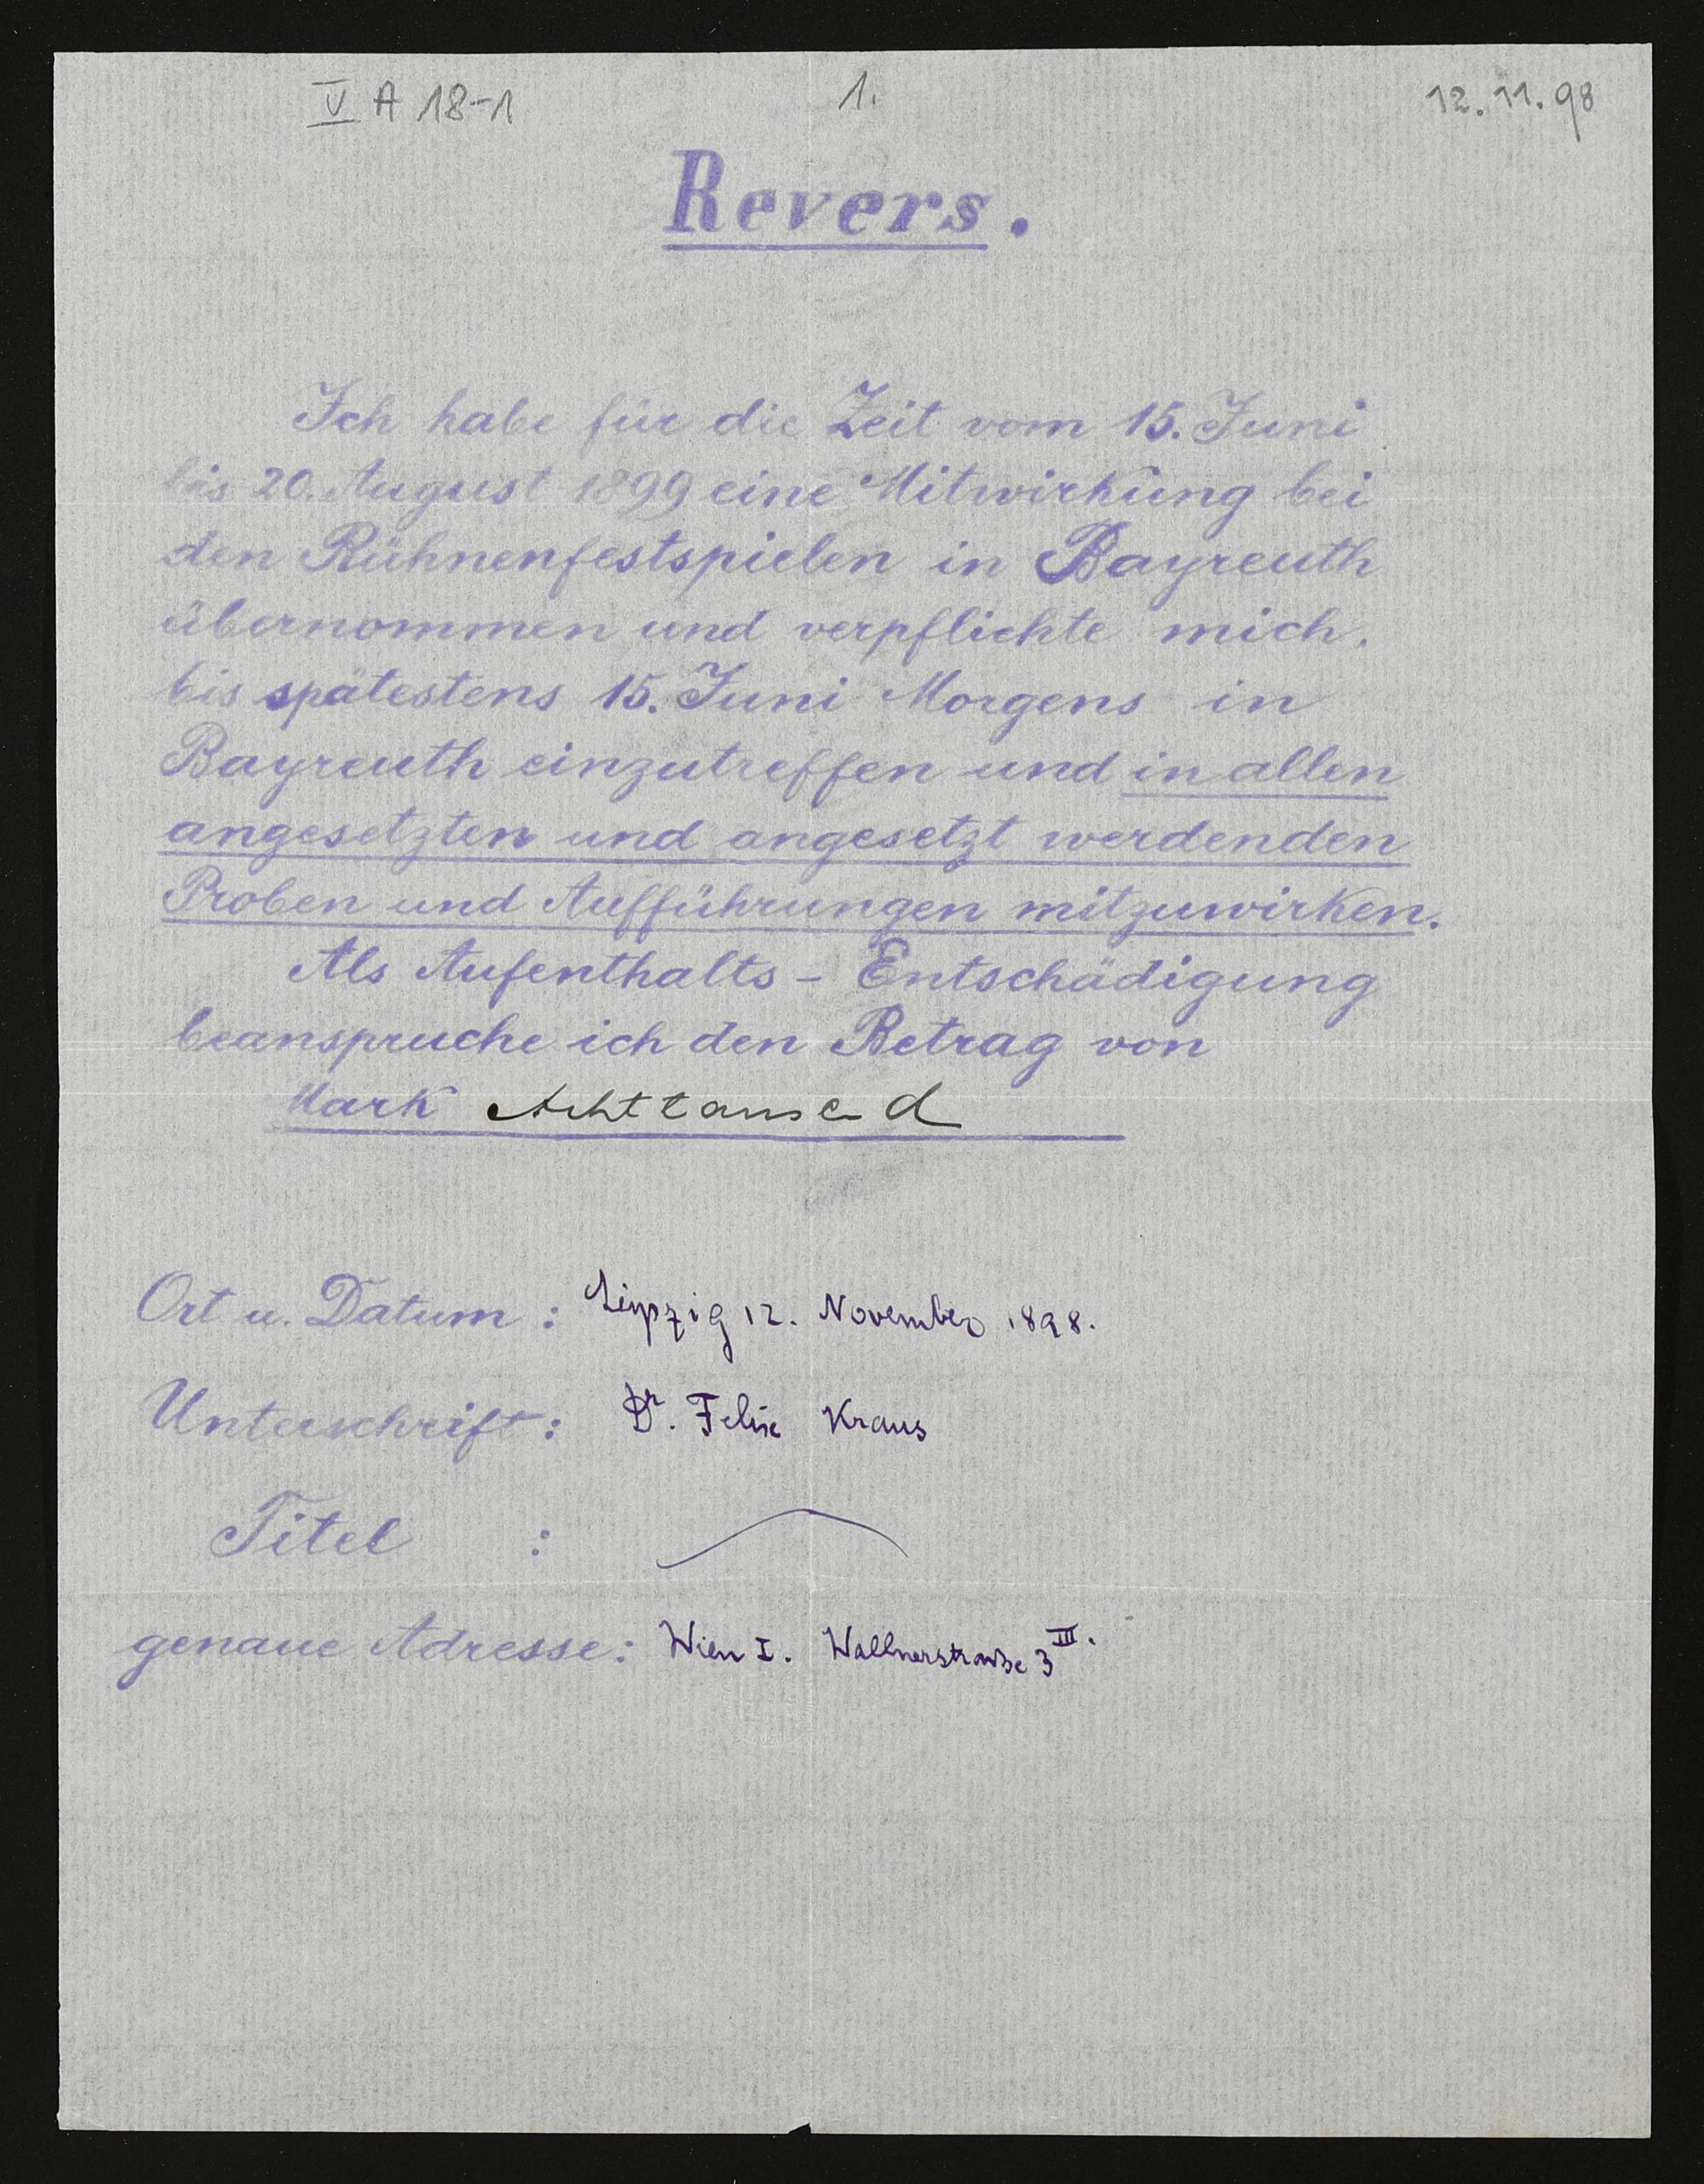 V A 18-1
1.
12.11.98
Revers.
Ich habe für die Zeit vom 15. Juni
bis 20. August 1899 eine Mitwirkung bei
den Bühnenfestspielen in Bayreuth
übernommen und verpflichte mich,
bis spätestens 15. Juni Morgens in
Bayreuth einzutreffen und in allen
angesetzten und angesetzt werdenden
Proben und Aufführungen mitzuwirken.
Als Aufenthalts - Entschädigung
beanspruche ich den Betrag von
Mark Achttausend
Ort u. Datum : Leipzig 12. November 1898.
Unterschrift : Dr. Felix Kraus
Titel :
genaue Adresse : Wien I. Wallnerstraße 3 III.